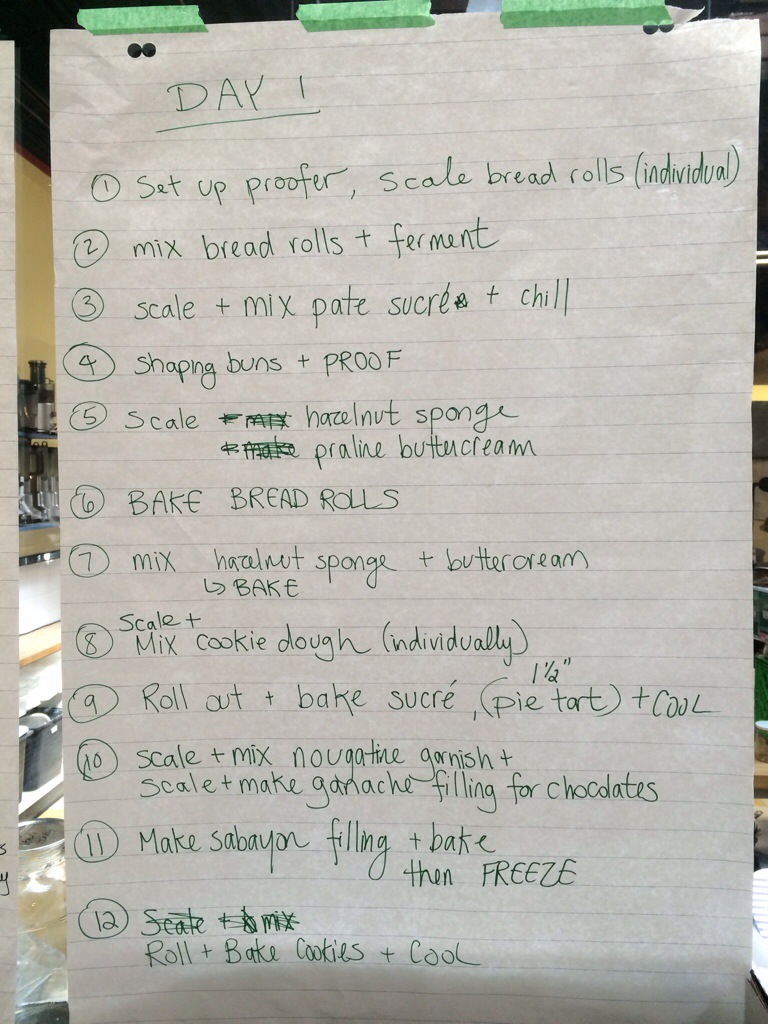 DAY 1
① Set up proofer, scale bread rolls (individual)
② mix bread rolls + ferment
③ scale + mix pate sucré + chill
④ Shaping buns + PROOF
⑤ Scale hazelnut sponge
praline buttercream
⑥ BAKE BREAD ROLLS
⑦ mix hazelnut sponge + buttercream
↳ BAKE
Scale +
⑧ Mix cookie dough (individually)
1½"
⑨ Roll out + bake sucré, (pie tart) + COOL
⑩ scale + mix nougatine garnish +
scale + make ganache filling for chocolates
⑪ Make sabayon filling + bake
then FREEZE
⑫ Scale + mix
Roll + Bake Cookies + COOL